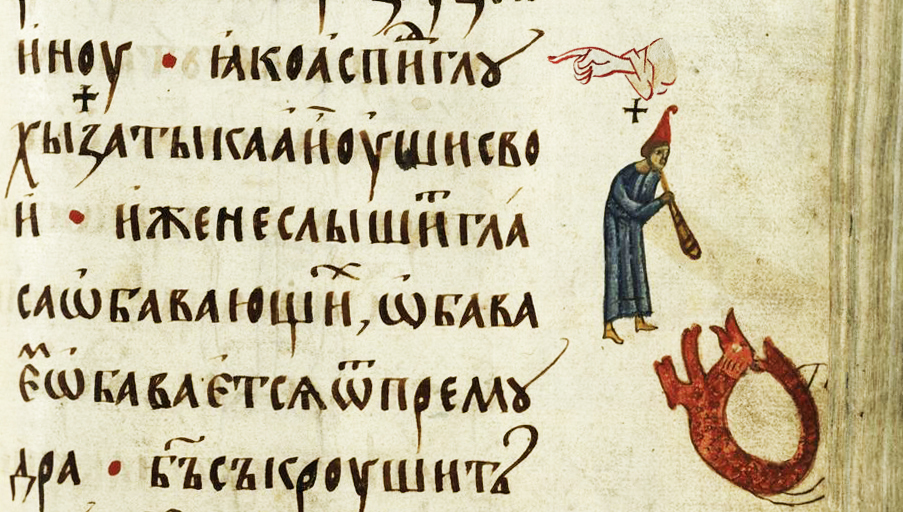 и҆ноу • ꙗ҆коа҆спиⷣглꙋ
хыꙁатыкааи҆оу҆шисво
и҆ • и҆женеслышиⷮгла
саѡ҆бавающиⷯ, ѡ҆бава
еⷨѡ҆баваетсѧѿпремꙋ
дра • б҃ъсъкроушитъ